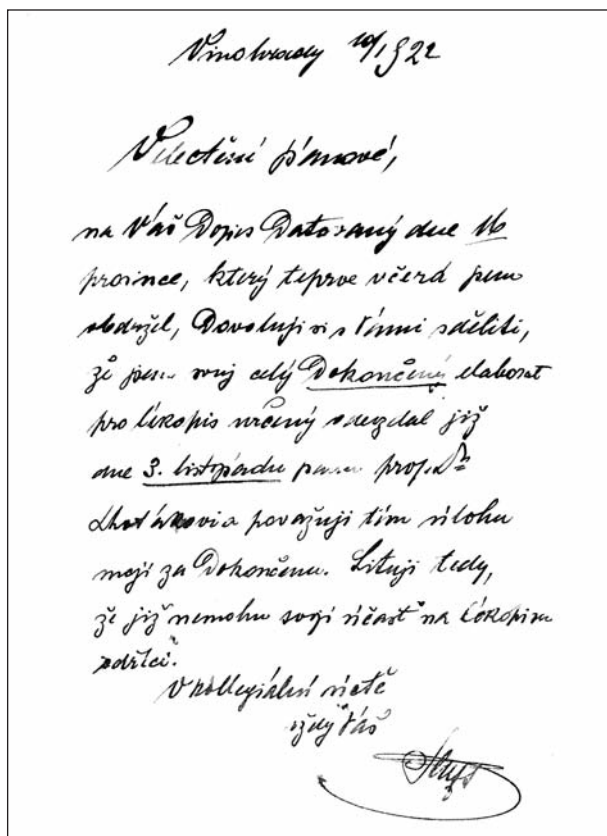 Vinohrady 10/I 922
Velectění pánové,
na Váš Dopis Datovaný dne 16
prosince, který teprve včera jsem
obdržel, Dovoluji si s Vámi sděliti,
že jsem svůj celý Dokončený elaborat
pro lékopis určený odevzdal již
dne 3. listopadu panu prof. Dr
a považuji tím úlohu
moji za Dokončenu. Lituji tedy,
že již nemohu svoji účast na Lékopisu
sdíleti.
V kollegiální úctě
vždy Váš